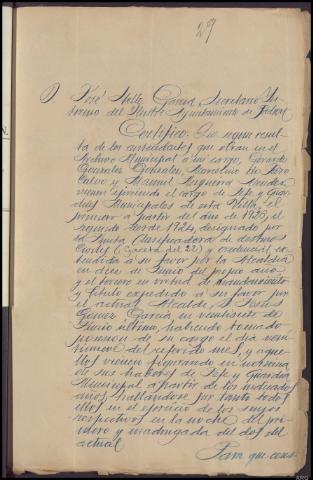 29
D. José Mella García, Secretario In-
terino del Ilustre Ayuntamiento de
Certifico: Que segun resul-
ta de los antecedentes que obran en el
Archivo Municipal a mi cargo, Gerardo
Gonzalez Gonzalez, Marcelino de
Calvo y Manuel
vienen ejerciendo el cargo de Jefe y Guar-
dias Municipales de esta Villa, el
primero a partir del año de 1926, el
segundo desde 1924, designado por
la Junta Clasificadora de destinos
Civiles y credencial ex-
tendida a su favor por la Alcaldia
en doce de Junio del propio año
y el tercero en virtud de nombramiento
y titulo expedido a su favor por
el actual Alcalde, D.
Gómez García en veintisiete de
Junio último, habiendo tomado
posesion de su cargo el dia vein-
tinueve del referido mes, y aque-
llos vienen figurando en nómina
de sus haberes de Jefe y Guardia
Municipal a partir de los indicados
años, hallándose por tanto todos
ellos en el ejercicio de los suyos
respectivos en la noche del pri-
mero y madrugada del dos del
actual
Para que cons-